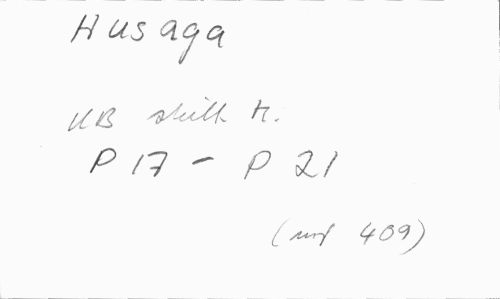 Husaga
KB skilt H.
P 17 - P 21
( 409)